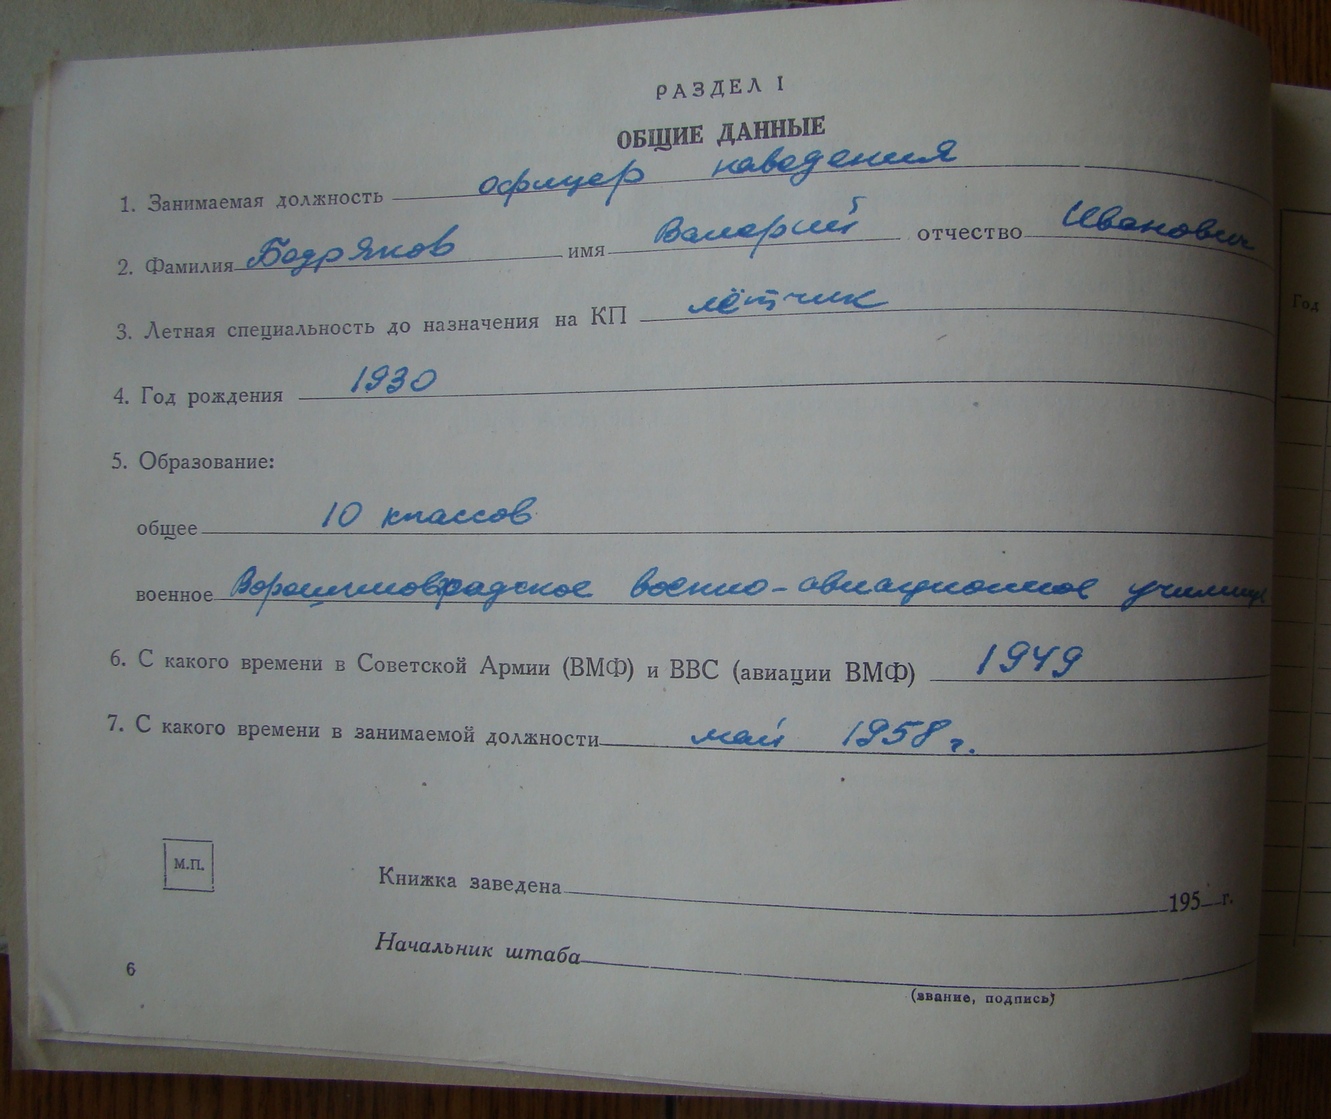 РАЗДЕЛ I
ОБЩИЕ ДАННЫЕ
1. Занимаемая должность офицер наведения
2. Фамилия Бодряков имя Валерий отчество Иванович
3. Летная специальность до назначения на КП лётчик
4. Год рождения 1930
5. Образование:
общее 10 классов
военное Ворошиловградское военно-авиационное училище
6. С какого времени в Советской Армии (ВМФ) и ВВС (авиации ВМФ) 1949
7. С какого времени в занимаемой должности май 1958 г.
М.П.
Книжка заведена 195 г.
Начальник штаба
(звание, подпись)
6
Год